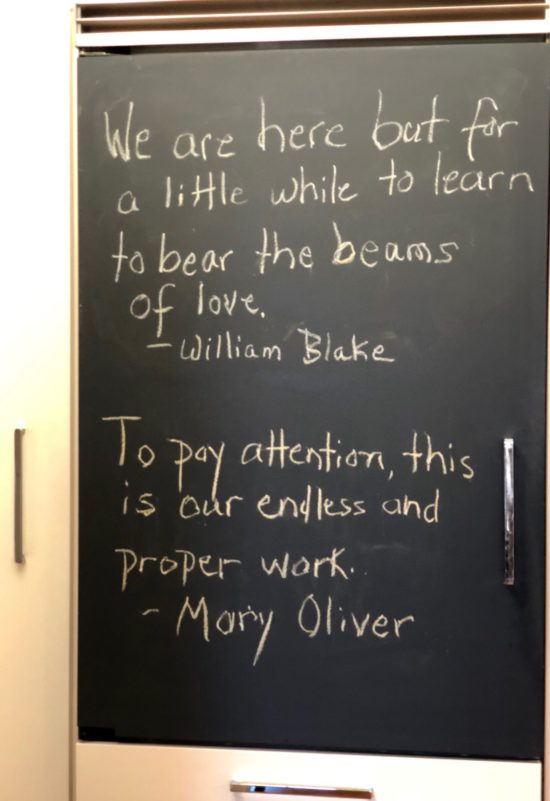 We are here but for
a little while to learn
to bear the beams
of love.
- William Blake
To pay attention, this
is our endless and
proper work.
- Mary Oliver